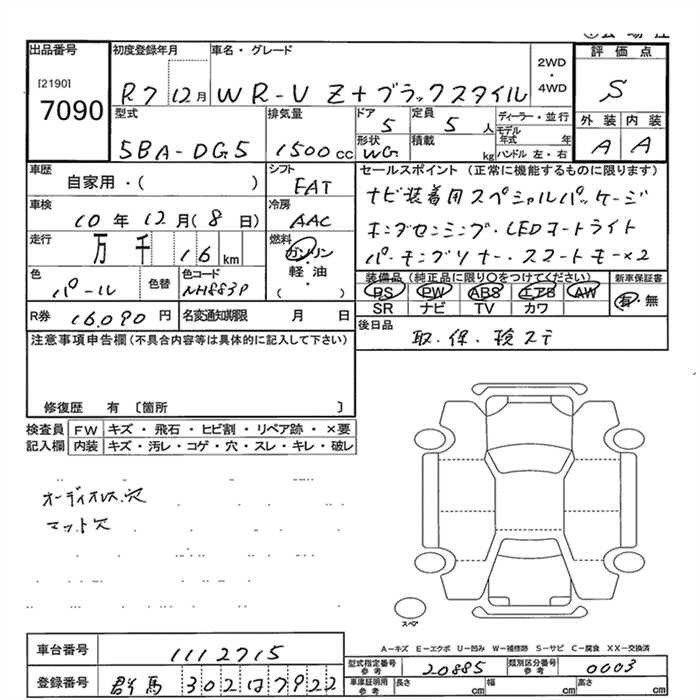 出品番号 初度登録年月 車名・グレード 評価点
[2190]
7090
R7 12月 WR-V Z+ブラックスタイル 2WD・4WD S
型式 排気量 ドア 定員 ディーラー・並行
5BA-DG5 1500cc 5 5人 モデル年式 年
形状 積載 ハンドル 左・右
WG kg
外装 内装
A A
車歴 シフト セールスポイント (正常に機能するものに限ります)
自家用・( ) FAT ナビ装着用スペシャルパッケージ
車検 冷房
10年12月(8日) AAC ホンダセンシング・LEDオートライト
走行 燃料
万 千 16km ガソリン・軽油・( ) パーキングソナー・スマートキー×2
色 色替 色コード 装備品 (純正品に限り○をつけてください) 新車保証書
パール NH883P PS PW ABS エアB AW 有・無
SR ナビ TV カワ
R券 16,090円 名変通知期限 月 日 後日品
取・保・検ステ
注意事項申告欄(不具合内容等は具体的に記入して下さい)
修復歴 有 〔箇所 〕
検査員記入欄 FW キズ・飛石・ヒビ割・リペア跡・×要
内装 キズ・汚レ・コゲ・穴・スレ・キレ・破レ
オーディオレス穴
マット穴
スペア
A-キズ E-エクボ U-凹み W-補修跡 S-サビ C-腐食 XX-交換済
車台番号 1112715
型式指定番号 参考 20885 類別区分番号 参考 0003
登録番号 群馬 302は7922
車庫証明用 参考 長さ cm 幅 cm 高さ cm